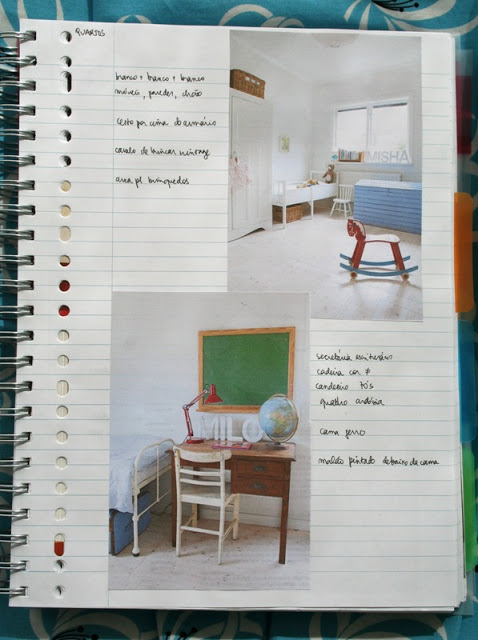 QUARTOS
branco + branco + branco
móveis, paredes, chão
cesto por cima do armário
cavalo de brincar vintage
area p/ brinquedos
MISHA
MILO
secretária escritório
cadeira cor ≠
candeeiro
quadro ardósia
cama ferro
malão pintado debaixo de cama